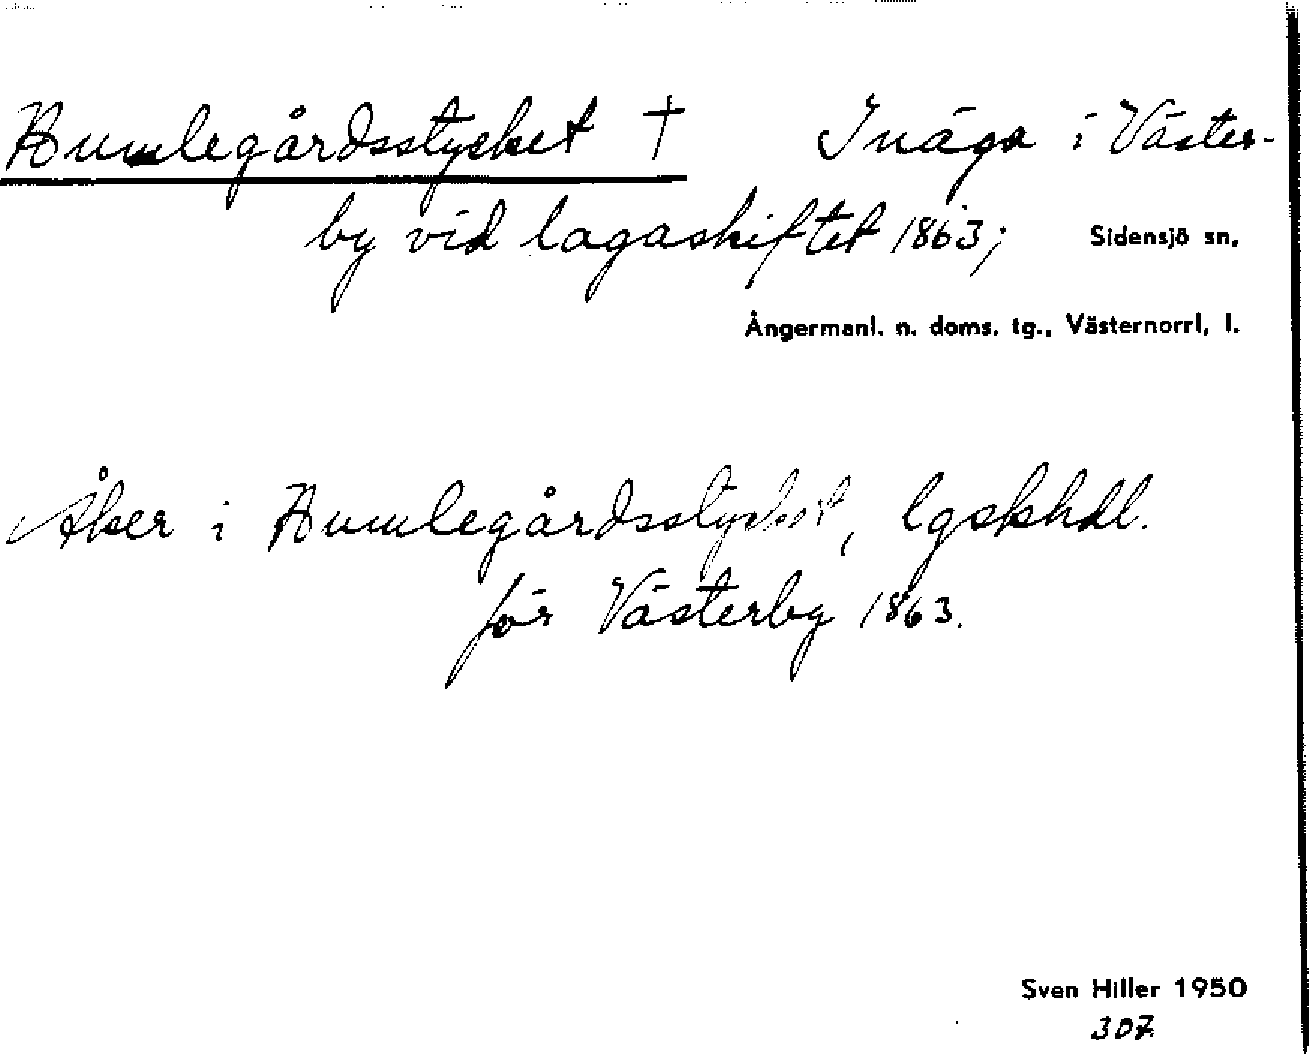 Humlegårdsstycket † Inäga i Väster-
by vid lagaskiftet 1863; Sidensjö sn,
Ångermanl. n. doms. tg., Västernorrl, l.
Åker i Humlegårdsstycket, lgskhdl.
för Västerby 1863.
Sven Hiller 1950
307.